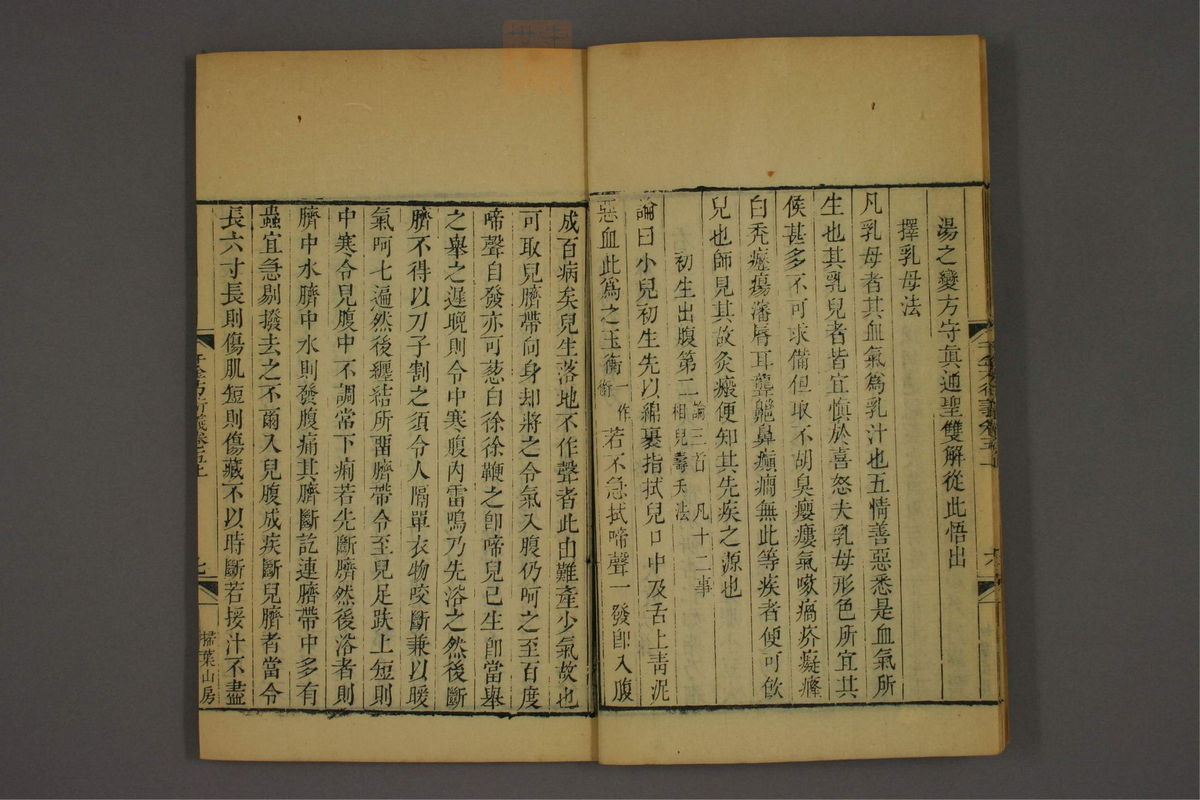 湯之變方守真通聖雙解從此悟出
擇乳母法
凡乳母者其血氣為乳汁也五情善惡悉是血氣所
生也其乳兒者皆宜慎於喜怒夫乳母形色所宜其
候甚多不可求備但取不胡臭癭瘻氣嗽瘑疥癡癃
白禿癧瘍瀋唇耳聾齆鼻癲癇無此等疾者便可飲
兒也師見其故灸瘢便知其先疾之源也
初生出腹第二
論三首 凡十二事
相兒壽夭法
論曰小兒初生先以綿裹指拭兒口中及舌上青泥
惡血此為之玉衡一作銜若不急拭啼聲一發即入腹
成百病矣兒生落地不作聲者此由難產少氣故也
可取兒臍帶向身却將之令氣入腹仍呵之至百度
啼聲自發亦可葱白徐徐鞭之即啼兒已生即當舉
之舉之遲晚則令中寒腹內雷鳴乃先浴之然後斷
臍不得以刀子割之須令人隔單衣物咬斷兼以暖
氣呵七遍然後纏結所留臍帶令至兒足趺上短則
中寒令兒腹中不調常下痢若先斷臍然後浴者則
臍中水臍中水則發腹痛其臍斷訖連臍帶中多有
蟲宜急剔撥去之不爾入兒腹成疾斷兒臍者當令
長六寸長則傷肌短則傷藏不以時斷若捼汁不盡
千金方衍義卷五上
七
掃葉山房